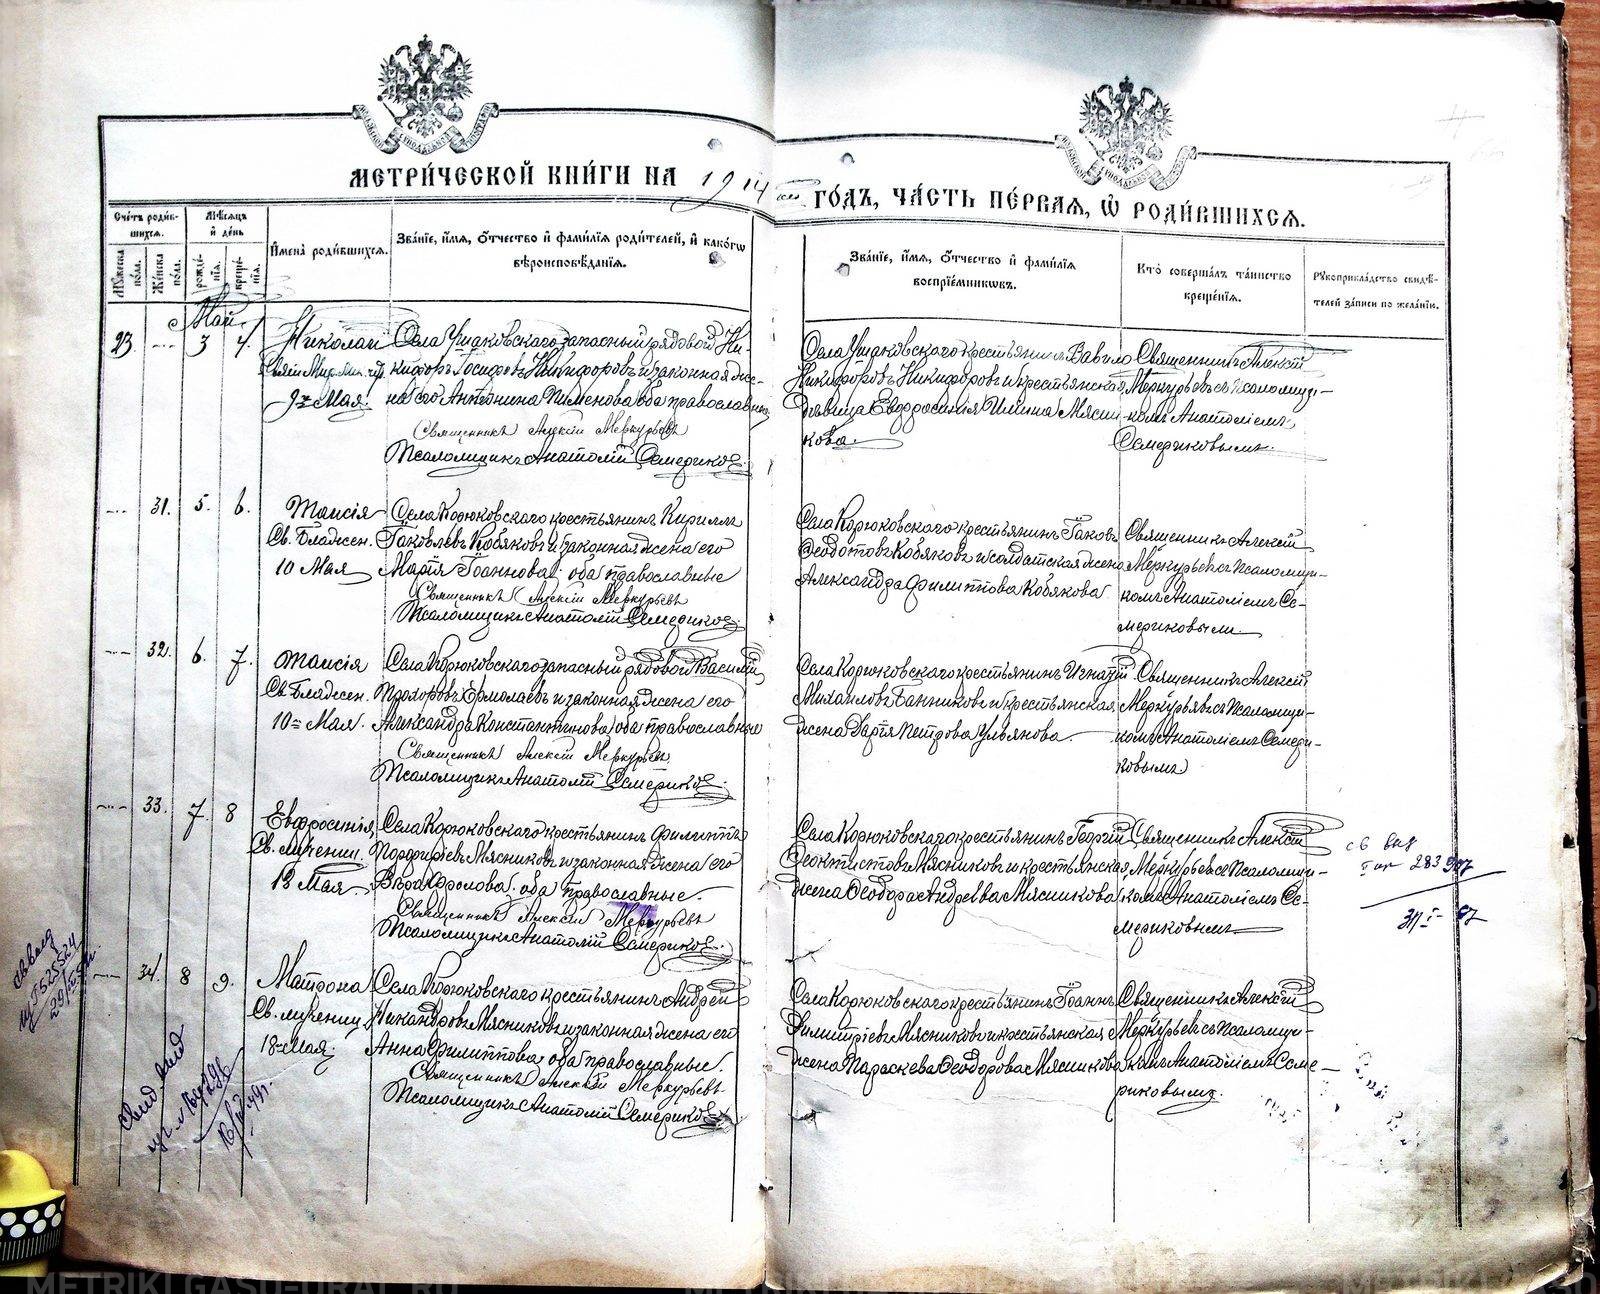 МЕТРИ́ЧЕСКОЙ КНИ́ГИ НА 1914 ГО́ДЪ, ЧА́СТЬ ПЕ́РВАЯ, Ѡ҆ РОДИ́ВШИХСЯ.
Сче́тъ роди́в-
шихся.
Мѣ́сяцъ
и҆ де́нь
Мꙋ́жеска
по́ла.
Же́нска
по́ла.
рожде́-
нїѧ.
креще́-
нїѧ.
И҆мена̀ роди́вшихсѧ.
Зва́нїе, и҆́мѧ, о҆́тчество и҆ фами́лїѧ роди́телей, и҆ како́гѡ
вѣроисповѣ́данїѧ.
Зва́нїе, и҆́мѧ, о҆́тчество и҆ фами́лїѧ
воспрїе́мниковъ.
Кто̀ соверша́лъ та́инство
креще́нїѧ.
Рꙋкоприкла́дство свидѣ́-
телей за́писи по жела́нїю.
Май
23. 3 4.
Николай
9го Мая.
Села Ушаковскаго запасный рядовой Ни-
кифоръ Іосифовъ Никифоровъ и законная же-
на его Антонина Пименова оба православные
Священникъ Алексій Меркурьевъ
Псаломщикъ Анатолій Семериковъ.
Села Ушаковскаго крестьянинъ Вавило
Никифоровъ Никифоровъ и крестьянская
дѣвица Евфросинія Ильина Мясни-
кова.
Священникъ Алексій
Меркурьевъ съ псаломщи-
комъ Анатоліемъ
Семериковымъ.
31. 5. 6.
Таисія
Св. Блажен.
10 Мая
Села Корюковскаго крестьянинъ Кириллъ
Іаковлевъ Кобяковъ и законная жена его
Марія Іоаннова, оба православные
Священникъ Алексій Меркурьевъ
Псаломщикъ Анатолій Семериковъ.
Села Корюковскаго крестьянинъ Іаковъ
Ѳеодотовъ Кобяковъ и солдатская жена
Александра Филиппова Кобякова
Священникъ Алексій
Меркурьевъ съ псаломщи-
комъ Анатоліемъ Се-
мериковымъ.
32. 6. 7.
Таисія
Св. Блажен.
10го Мая.
Села Корюковскаго запасный рядовой Василій
Прохоровъ Ермолаевъ и законная жена его
Александра Константинова оба православные
Священникъ Алексій Меркурьевъ
Псаломщикъ Анатолій Семериковъ.
Села Корюковскаго крестьянинъ Игнатій
Михаиловъ Банниковъ и крестьянская
жена Дарія Петрова Ульянова.
Священникъ Алексій
Меркурьевъ съ псаломщи-
комъ Анатоліемъ Семери-
ковымъ
33. 7. 8
Евфросинія
Св. мучениц.
12 Мая
Села Корюковскаго крестьянинъ Филиппъ
Порфиріевъ Мясниковъ и законная жена его
Вѣра Королова. оба православные.
Священникъ Алексій Меркурьевъ
Псаломщикъ Анатолій Семериковъ.
Села Корюковскаго крестьянинъ Георгій
Ѳеоктистовъ Мясниковъ и крестьянская
жена Ѳеодора Андреева Мясникова
Священникъ Алексій
Меркурьевъ съ псаломщи-
комъ Анатоліемъ Се-
мериковымъ
34. 8 9.
Матрона
Св. мучениц.
18го Мая
Села Корюковскаго крестьянинъ Андрей
Никандровъ Мясниковъ и законная жена его
Анна Филиппова, оба православные.
Священникъ Алексій Меркурьевъ
Псаломщикъ Анатолій Семериковъ.
Села Корюковскаго крестьянинъ Іоаннъ
Димитріевъ Мясниковъ и крестьянская
жена Параскева Ѳеодорова Мясникова
Священникъ Алексій
Меркурьевъ съ псаломщи-
комъ Анатоліемъ Семе-
риковымъ.
METRIKI.GASO-URAL.RU